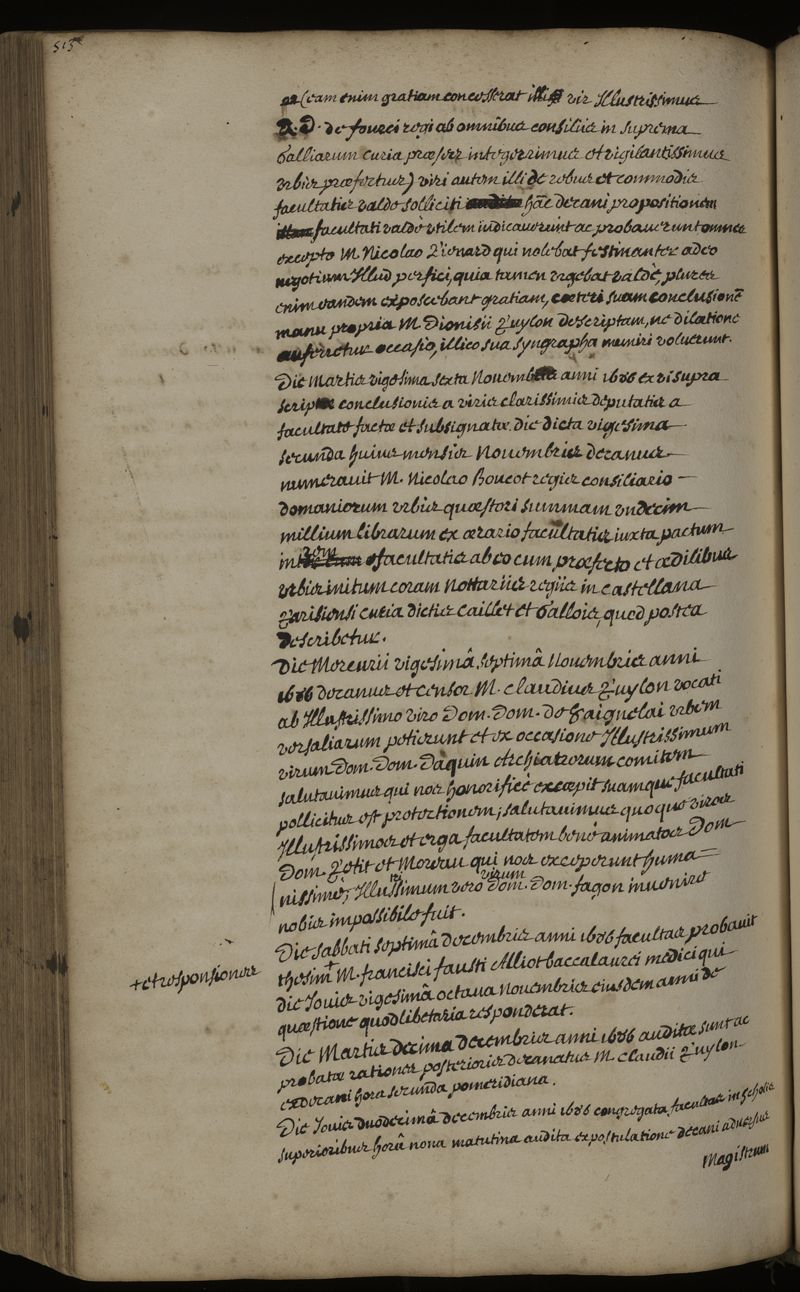 515
(eam enim gratiam concesserat illis vir Illustrissimus
D. D. de fourci regi ab omnibus consiliis in suprema
Galliarum curia præses integerrimus et vigilantissimus
urbis præfectus) viri autem illi de rebus et commodis
facultatis valdè solliciti hãc decani propositionem
facultati valdè utilem iudicaverunt ac probaverunt omnes
excepto M. Nicolao Lienard qui nolebat festinanter adeo
negotium Illud perfici, quia tamen urgebat valdè, plures
enim eandem exposcebant gratiam, cæteri suam conclusionẽ
manu propria M. Dionisii Puylon descriptam, ne dilatione
auferretur occasio, illico sua syngrapha muniri voluerunt.
Die Martis vigesima sexta Novembris anni 1686 ex vi supra
scriptæ conclusionis a viris clarissimis deputatis a
facultate factæ et subsignatæ die dicta vigesima
secunda huius mensis Novembris decanus
numeravit M. Nicolao Boucot regis consiliario
domaniorum urbis quæstori summam undecim
millium librarum ex ærario facultatis iuxta pactum
facultatis ab eo cum præfecto et ædilibus
urbis initum coram Nottariis regiis in castellana
Parisiensi curia dictis caillet et Gallois, quod postea
describetur.
Die Mercurii vigesimâ septimâ Novembris anni
1686 decanus et censor M. claudius Puylon vocati
ab Illustrissimo viro Dom. Dom. Daquin urbem
versaliarum petierunt et ex occasione Illustrissimum
virum Dom. Dom. Daquin Archiatrorum comitem
salutavimus qui nos honorificè excepit suamque facultati
pollicitus est protectionem; salutavimus quoque viros
Illustrissimos et erga facultatem benè animatos Dom
Dom. Petit et Moreau qui nos exceperunt huma=
nissimè; Illustrissimum vero virum Dom. Dom. fagon invenire
nobis impossibile fuit.
Die sabbati septimâ decembris anni 1686 facultas probavit
thesim + M. francisci fausti Alliot baccalaurei medici qui
+ et responsiones
die Jovis vigesimâ octava Novembris eiusdem anni de
quæstione quodlibetaria responderat.
Die Martis decima decembris anni 1686 auditæ sunt ac
probatæ rationes posterioris decanatus M. claudii Puylon
exdecani hora secunda pomeridiana.
Die Jovis duodecimâ decembris anni 1686 congregata facultas in scholis
superioribus horâ nona matutina audita expostulatione decani adversus
Magistrum